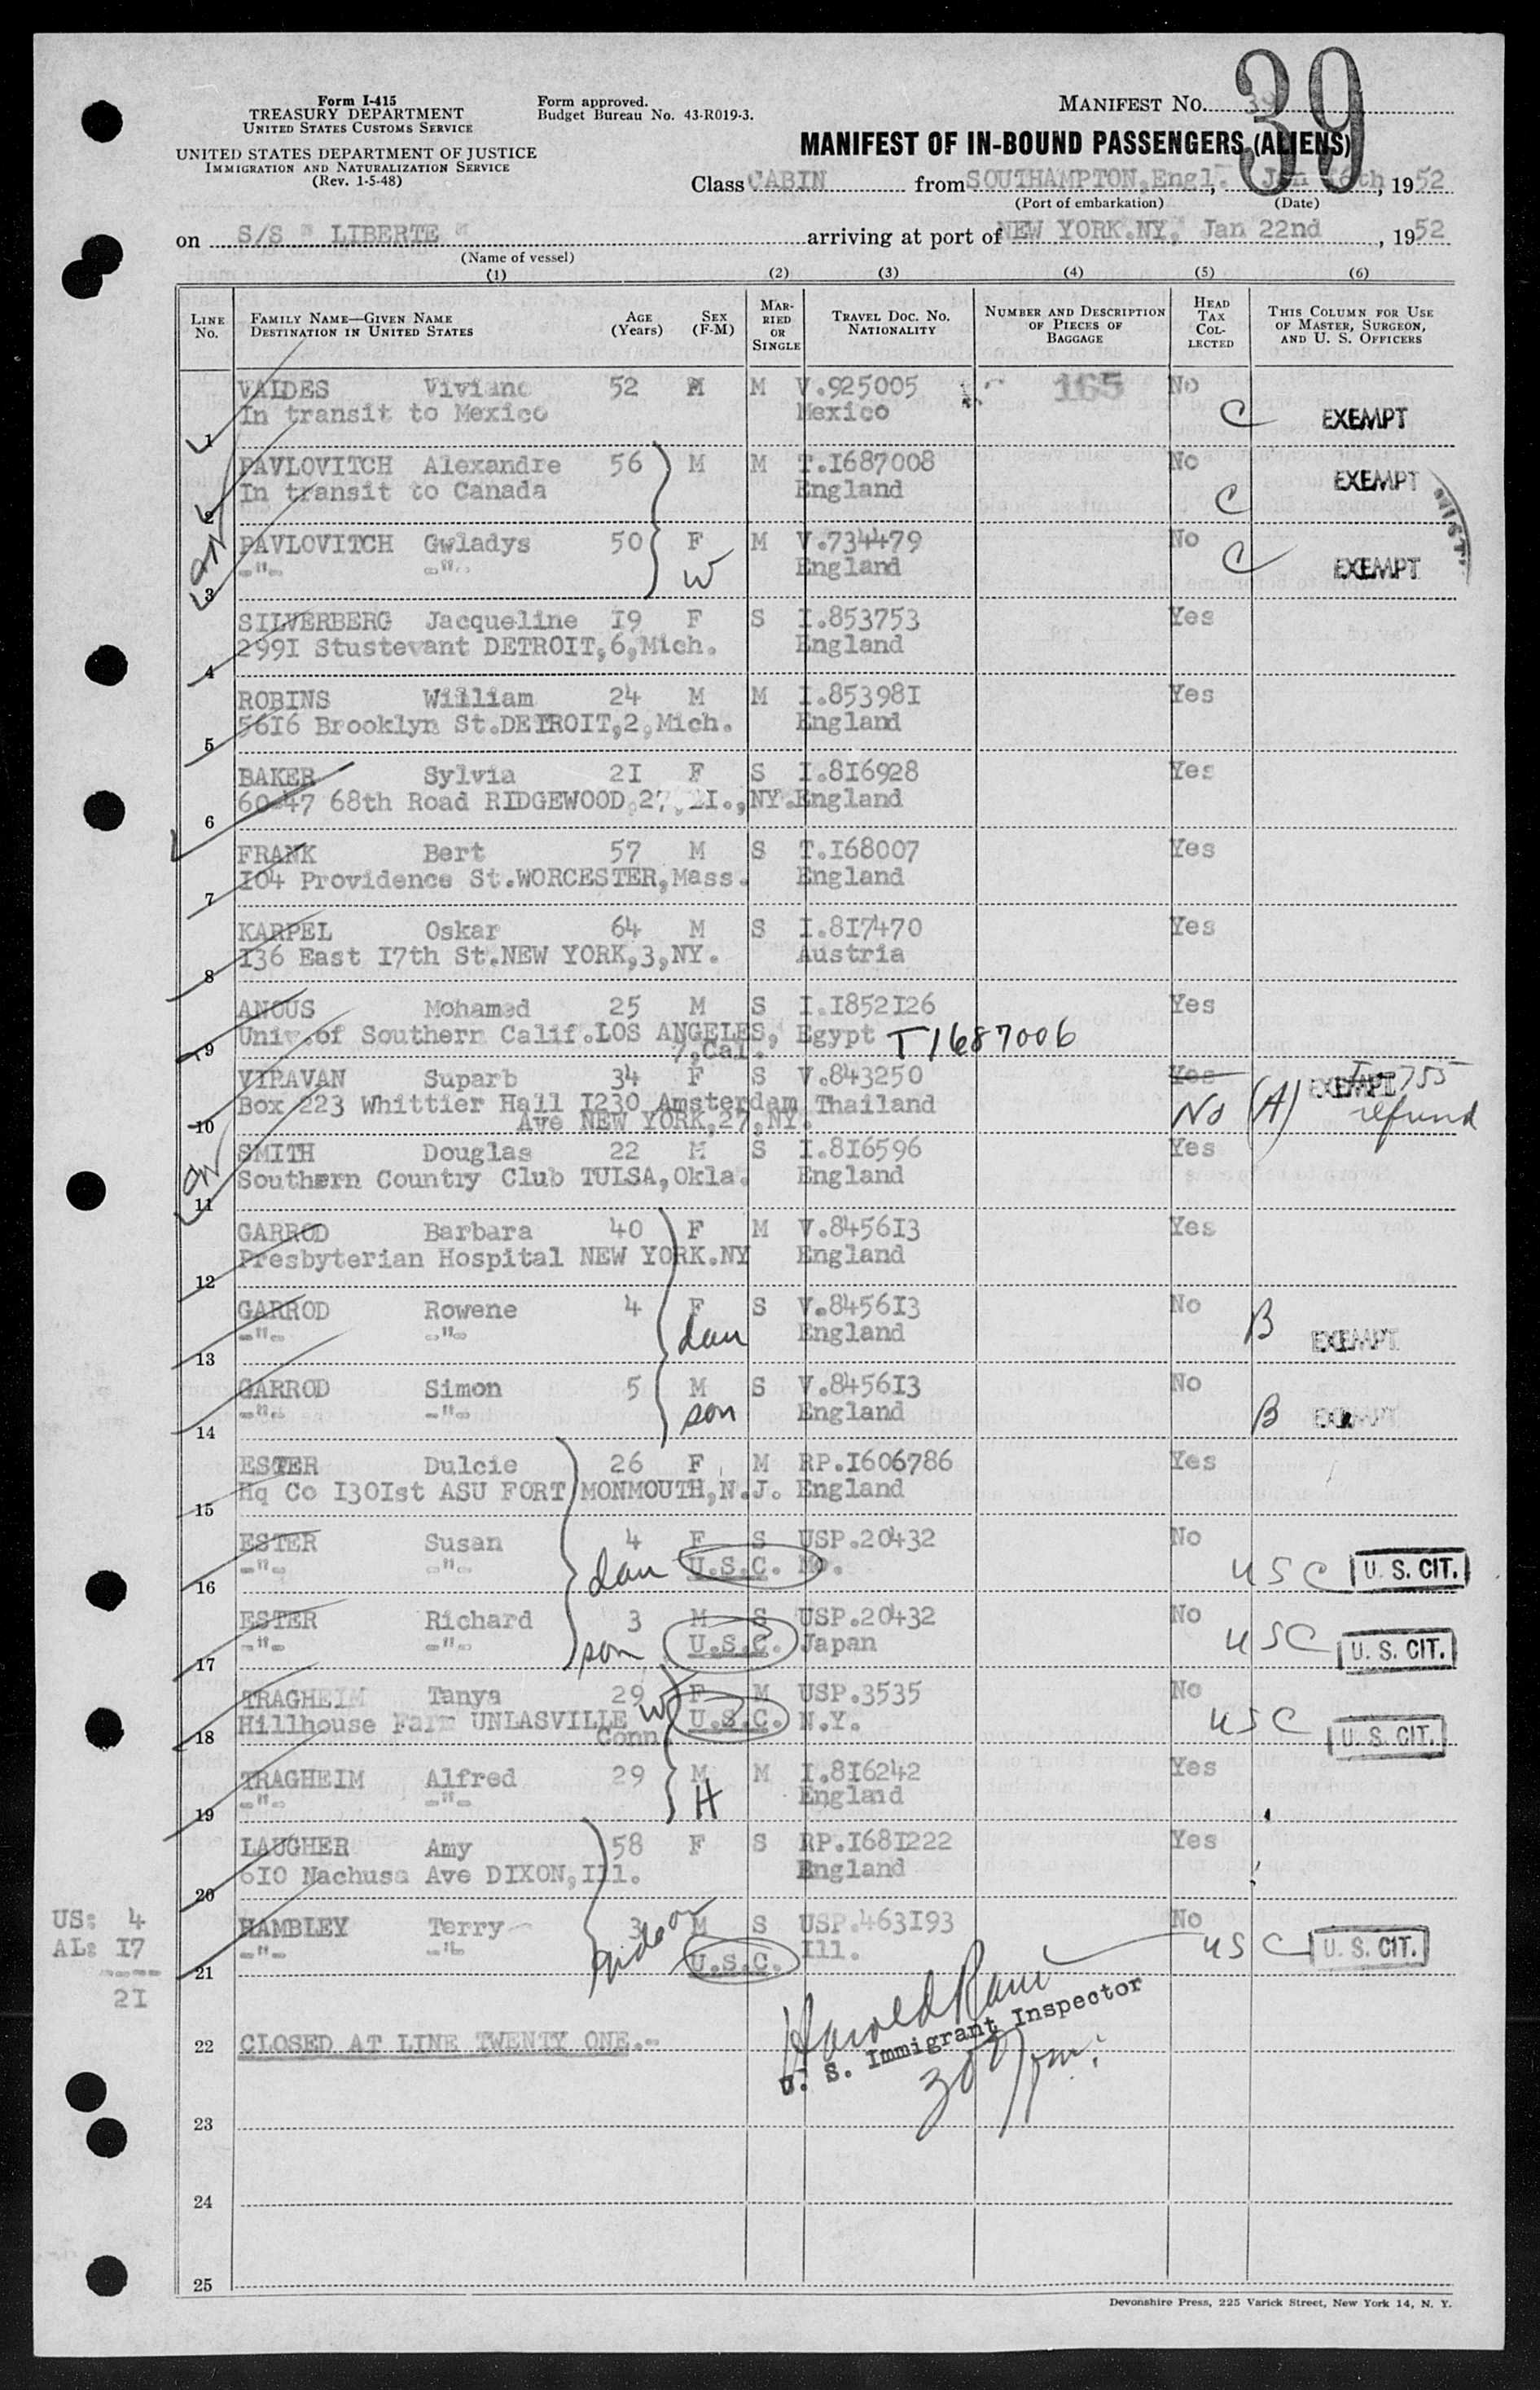 Form I-415
TREASURY DEPARTMENT
UNITED STATES CUSTOMS SERVICE
UNITED STATES DEPARTMENT OF JUSTICE
IMMIGRATION AND NATURALIZATION SERVICE
(Rev. 1-5-48)
Form approved.
Budget Bureau No. 43-R019-3.
MANIFEST NO. 39
39
MANIFEST OF IN-BOUND PASSENGERS (ALIENS)
Class CABIN from SOUTHAMPTON,Engl., Jan 16th, 1952
(Port of embarkation) (Date)
on S/S " LIBERTE " arriving at port of NEW YORK.NY, Jan 22nd, 1952
(Name of vessel)
(1) (2) (3) (4) (5) (6)
LINE No. FAMILY NAME—GIVEN NAME DESTINATION IN UNITED STATES AGE (Years) SEX (F-M) MARRIED OR SINGLE TRAVEL DOC. NO. NATIONALITY NUMBER AND DESCRIPTION OF PIECES OF BAGGAGE HEAD TAX COLLECTED THIS COLUMN FOR USE OF MASTER, SURGEON, AND U. S. OFFICERS
VAIDES Viviano 52 M M V.925005 165 No
1 In transit to Mexico Mexico C EXEMPT
PAVLOVITCH Alexandre 56 M M T.I687008 No
2 In transit to Canada England C EXEMPT
PAVLOVITCH Gwladys 50 F M V.734479 No
3 -"- -"- W England C EXEMPT
SILVERBERG Jacqueline I9 F S I.853753 Yes
4 299I Stustevant DETROIT,6,Mich. England
ROBINS William 24 M M I.85398I Yes
5 56I6 Brooklyn St.DETROIT,2,Mich. England
BAKER Sylvia 2I F S I.8I6928 Yes
6 60-47 68th Road RIDGEWOOD,27,LI.,NY. England
FRANK Bert 57 M S T.I68007 Yes
7 I04 Providence St.WORCESTER,Mass. England
KARPEL Oskar 64 M S I.8I7470 Yes
8 I36 East I7th St.NEW YORK,3,NY. Austria
ANOUS Mohamed 25 M S I.I852I26 Yes
9 Univ.of Southern Calif.LOS ANGELES, Egypt T1687006
7,Cal.
VIRAVAN Suparb 34 F S V.843250 Yes EXEMPT
10 Box 223 Whittier Hall I230 Amsterdam Thailand No (A) refund
Ave NEW YORK,27,NY.
SMITH Douglas 22 M S I.8I6596 Yes
11 Southern Country Club TULSA,Okla. England
GARROD Barbara 40 F M V.8456I3 Yes
12 Presbyterian Hospital NEW YORK.NY England
GARROD Rowene 4 F S V.8456I3 No
13 -"- -"- dau England B EXEMPT
GARROD Simon 5 M S V.8456I3 No
14 -"- -"- son England B EXEMPT
ESTER Dulcie 26 F M RP.I606786 Yes
15 Hq Co I30Ist ASU FORT MONMOUTH,N.J. England
ESTER Susan 4 F S USP.20432 No
16 -"- -"- dau U.S.C. Mo. USC U. S. CIT.
ESTER Richard 3 M S USP.20432 No
17 -"- -"- son U.S.C. Japan USC U. S. CIT.
TRAGHEIM Tanya 29 W F M USP.3535 No
18 Hillhouse Farm UNLASVILLE U.S.C. N.Y. USC U. S. CIT.
Conn
TRAGHEIM Alfred 29 M M I.8I6242 Yes
19 -"- -"- H England
LAUGHER Amy 58 F S RP.I68I222 Yes
20 6I0 Nachusa Ave DIXON,Ill. England
HAMBLEY Terry 3 M S USP.463I93 No
21 -"- -"- U.S.C. Ill. USC U. S. CIT.
US: 4
AL: I7
----
2I
22 CLOSED AT LINE TWENTY ONE.-
U. S. Immigrant Inspector
23
24
25
Devonshire Press, 225 Varick Street, New York 14, N. Y.